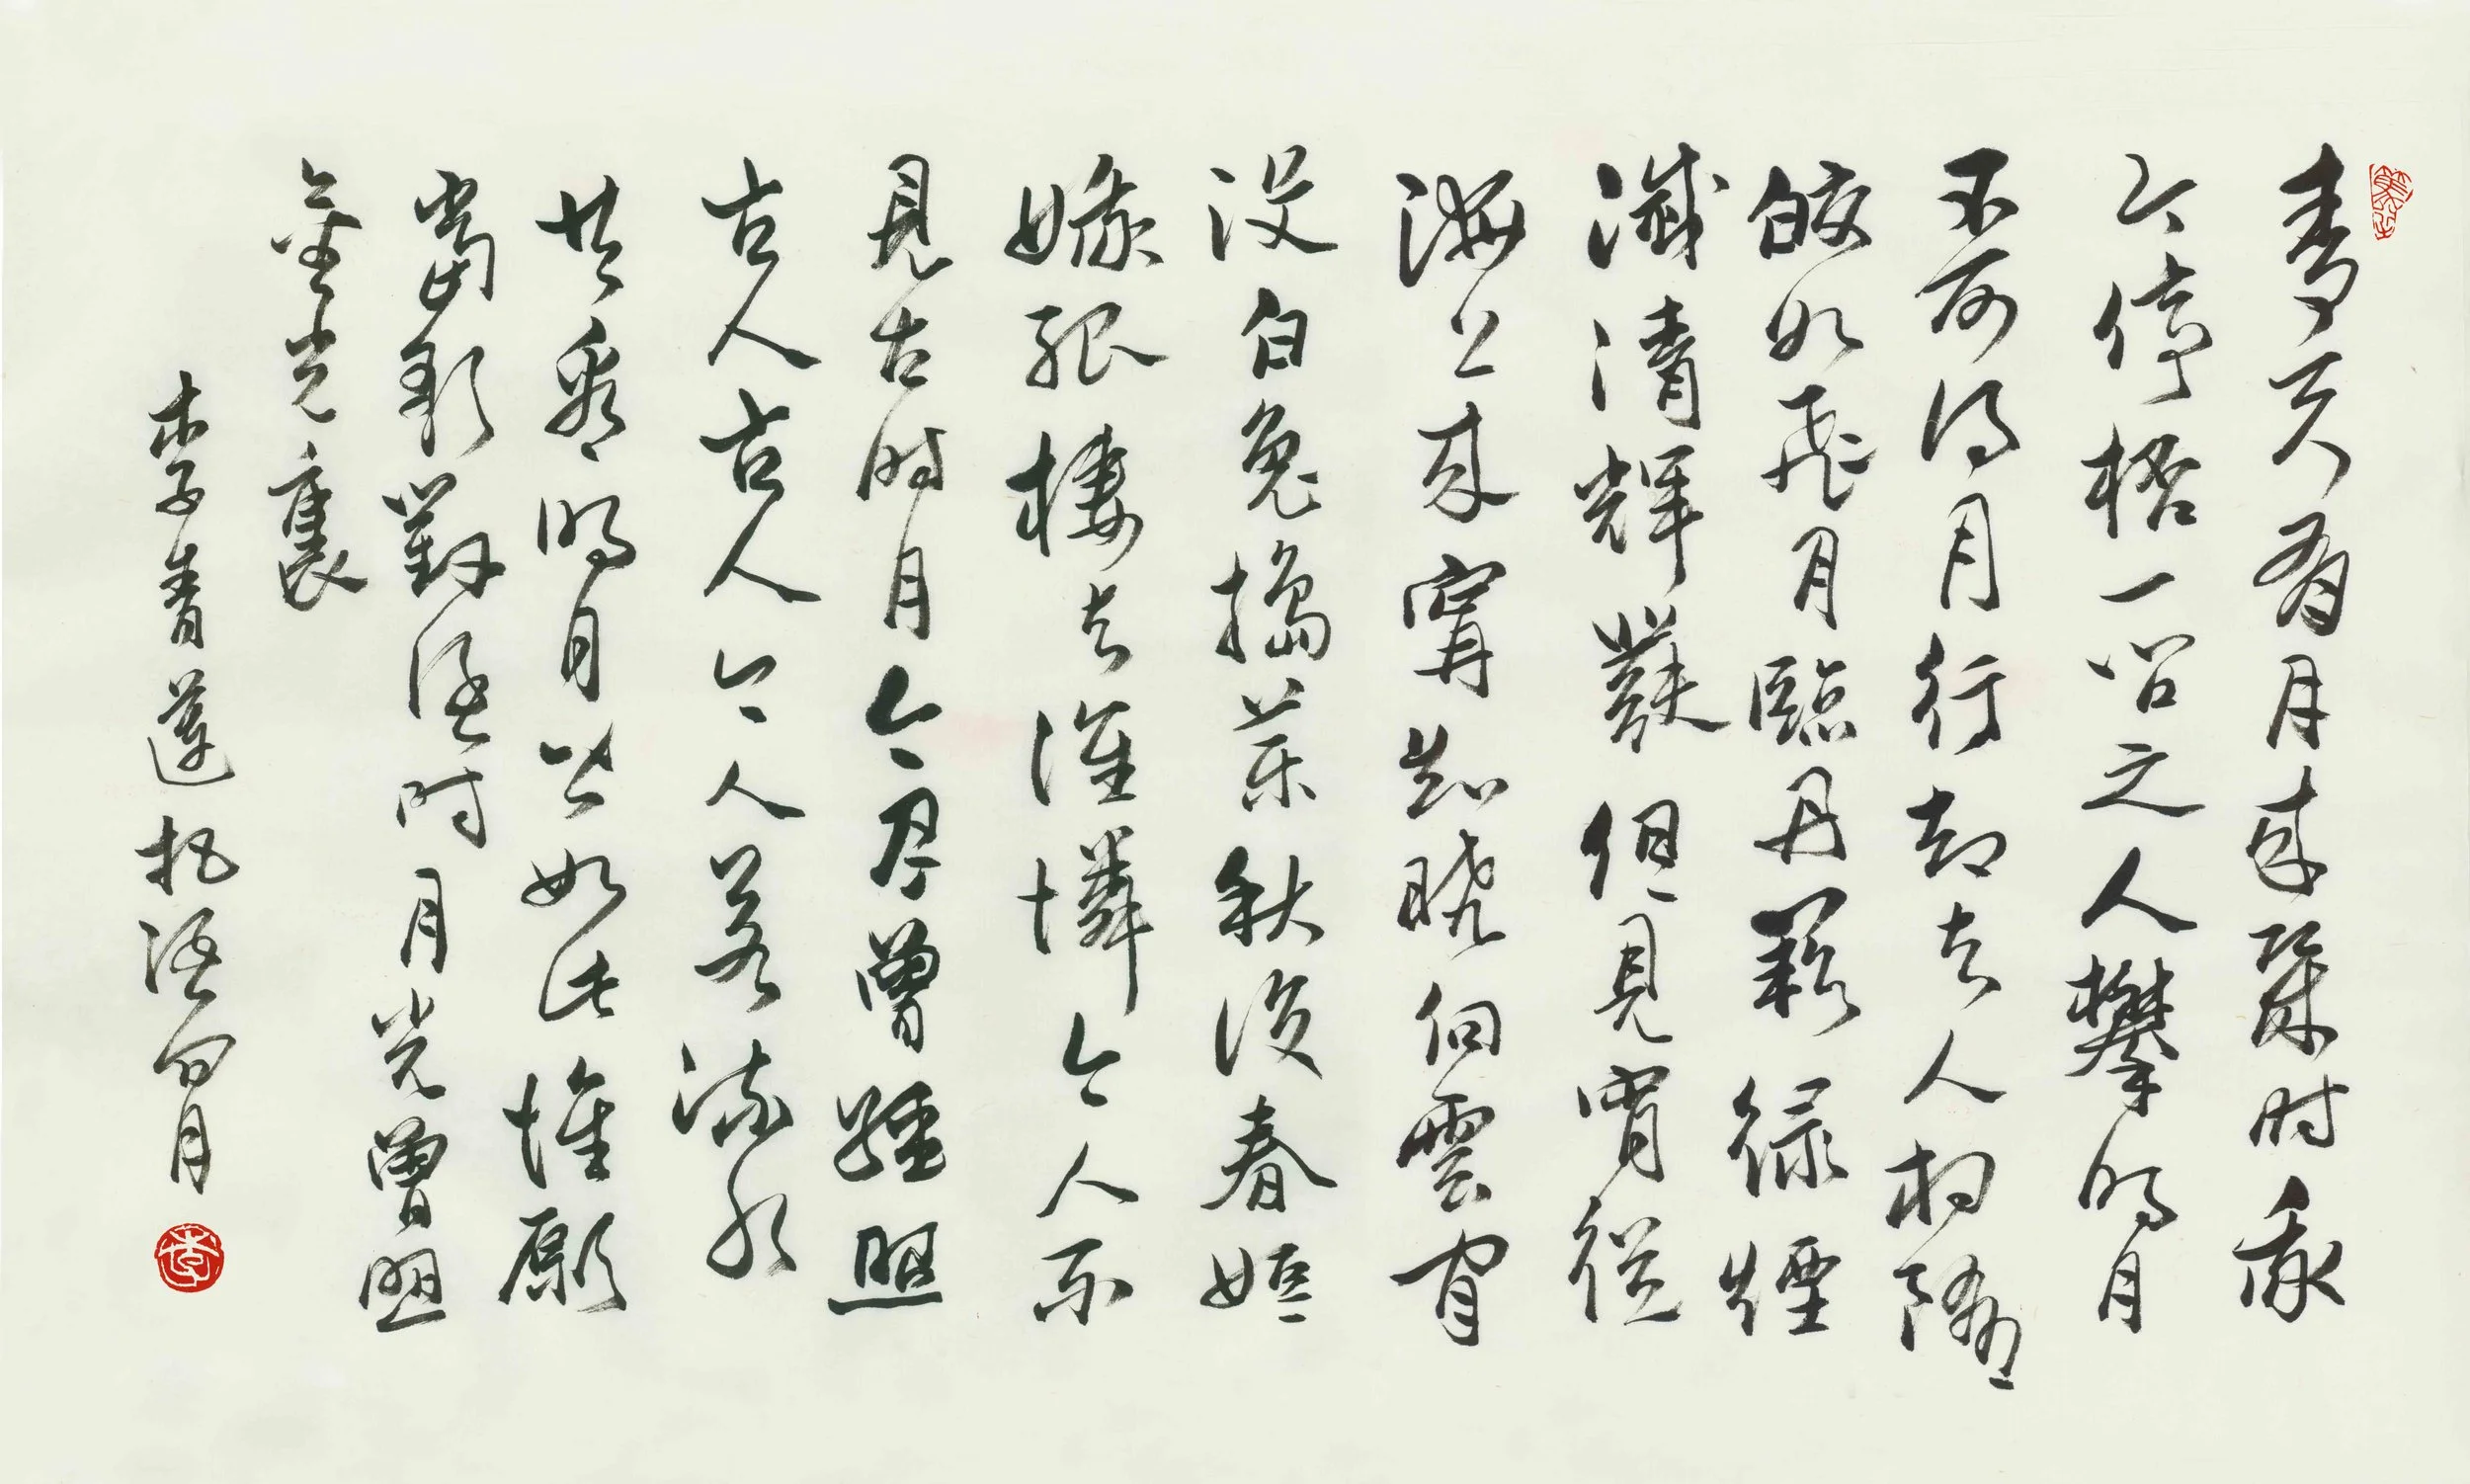 青天有月来幾时我
今停桮一问之人攀明月
不可得月行却去人相隨
皎如飛月臨丹闕緑煙
滅清輝發但見宵從
海上来寧知曉向雲间
没白兔搗药秋復春姮
娥孤棲与谁憐今人不
見古时月今月曾經照
古人古人今人若流水
共看明月皆如此惟願
當歌對酒时月光曾照
金光裏
李青蓮把酒问月